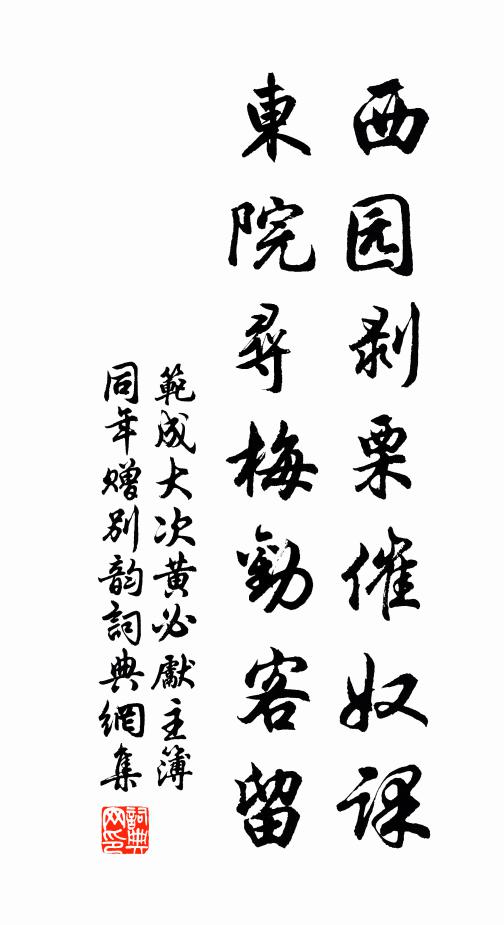 西园剥栗催奴课
東院尋梅勸客留
範成大次黄必獻主簿
同年赠别韵詞典網集
詞典网印